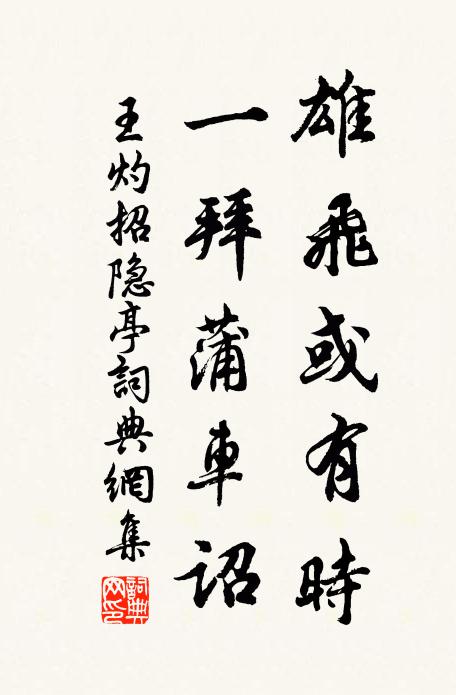 雄飛或有時
一拜蒲車詔
王灼招隐亭詞典網集
詞典网印